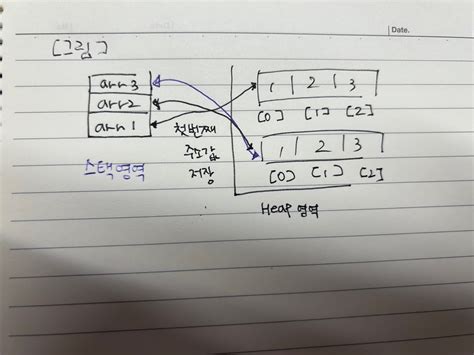 Date.
[그림]
arr3
arr2
arr1
스택영역
첫번째
주소값
저장
1 | 2 | 3
[0] [1] [2]
1 | 2 | 3
[0] [1] [2]
Heap 영역